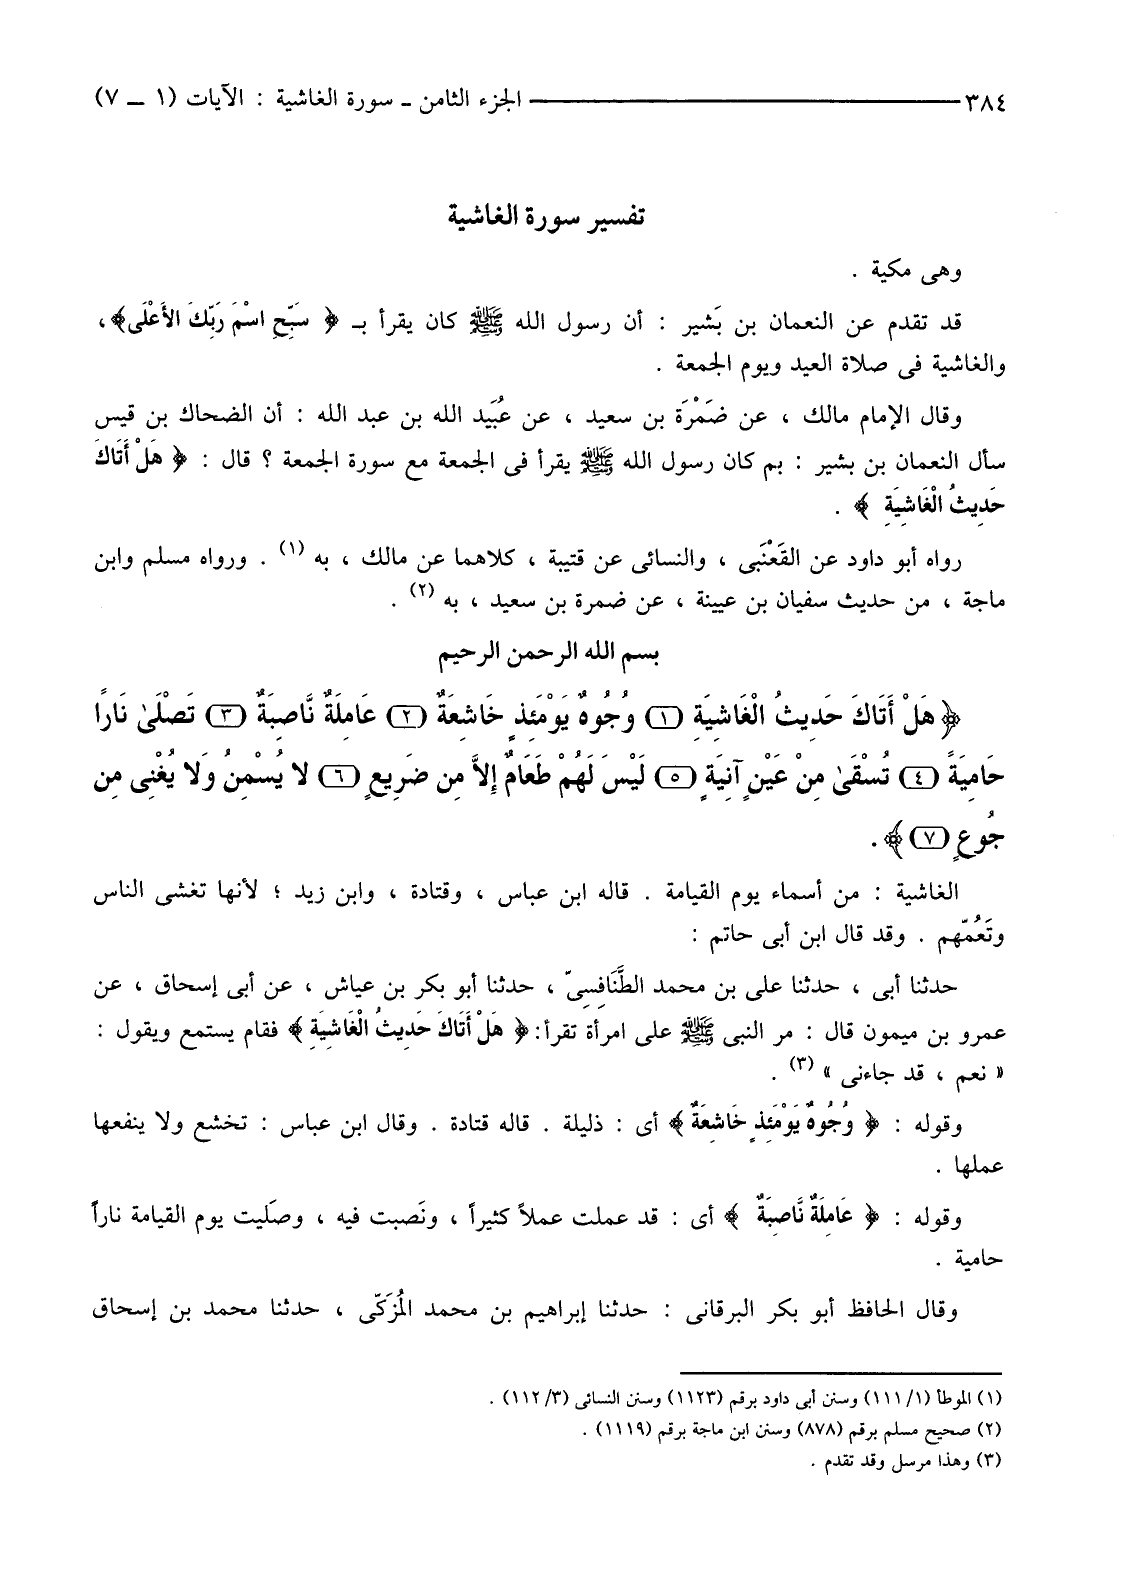 ٣٨٤ ــــــــ الجزء الثامن ـ سورة الغاشية : الآيات (١ ـ ٧)
تفسير سورة الغاشية
وهى مكية .
قد تقدم عن النعمان بن بَشير : أن رسول الله ﷺ كان يقرأ بـ ﴿ سَبِّحِ اسْمَ رَبِّكَ الأَعْلَى﴾،
والغاشية فى صلاة العيد ويوم الجمعة .
وقال الإمام مالك ، عن ضَمْرَة بن سعيد ، عن عُبَيد الله بن عبد الله : أن الضحاك بن قيس
سأل النعمان بن بشير : بم كان رسول الله ﷺ يقرأ فى الجمعة مع سورة الجمعة ؟ قال : ﴿ هَلْ أَتَاكَ
حَدِيثُ الْغَاشِيَةِ ﴾ .
رواه أبو داود عن القَعْنَبى ، والنسائى عن قتيبة ، كلاهما عن مالك ، به (١) . ورواه مسلم وابن
ماجة ، من حديث سفيان بن عيينة ، عن ضمرة بن سعيد ، به (٢) .
بسم الله الرحمن الرحيم
﴿هَلْ أَتَاكَ حَدِيثُ الْغَاشِيَةِ (١) وُجُوهٌ يَوْمَئِذٍ خَاشِعَةٌ (٢) عَامِلَةٌ نَّاصِبَةٌ (٣) تَصْلَىٰ نَارًا
حَامِيَةً (٤) تُسْقَىٰ مِنْ عَيْنٍ آنِيَةٍ (٥) لَيْسَ لَهُمْ طَعَامٌ إِلاَّ مِن ضَرِيعٍ (٦) لا يُسْمِنُ وَلا يُغْنِى مِن
جُوعٍ (٧)﴾.
الغاشية : من أسماء يوم القيامة . قاله ابن عباس ، وقتادة ، وابن زيد ؛ لأنها تغشى الناس
وتَعُمّهم . وقد قال ابن أبى حاتم :
حدثنا أبى ، حدثنا على بن محمد الطَّنَافِسِىّ ، حدثنا أبو بكر بن عياش ، عن أبى إسحاق ، عن
عمرو بن ميمون قال : مر النبى ﷺ على امرأة تقرأ: ﴿ هَلْ أَتَاكَ حَدِيثُ الْغَاشِيَةِ ﴾ فقام يستمع ويقول :
« نعم ، قد جاءنى » (٣) .
وقوله : ﴿ وُجُوهٌ يَوْمَئِذٍ خَاشِعَةٌ ﴾ أى : ذليلة . قاله قتادة . وقال ابن عباس : تخشع ولا ينفعها
عملها .
وقوله : ﴿ عَامِلَةٌ نَّاصِبَةٌ ﴾ أى : قد عملت عملاً كثيراً ، ونَصبت فيه ، وصَليت يوم القيامة ناراً
حامية .
وقال الحافظ أبو بكر البرقانى : حدثنا إبراهيم بن محمد المُزَكّى ، حدثنا محمد بن إسحاق
(١) الموطأ (١/ ١١١) وسنن أبى داود برقم (١١٢٣) وسنن النسائى (٣/ ١١٢) .
(٢) صحيح مسلم برقم (٨٧٨) وسنن ابن ماجة برقم (١١١٩) .
(٣) وهذا مرسل وقد تقدم .